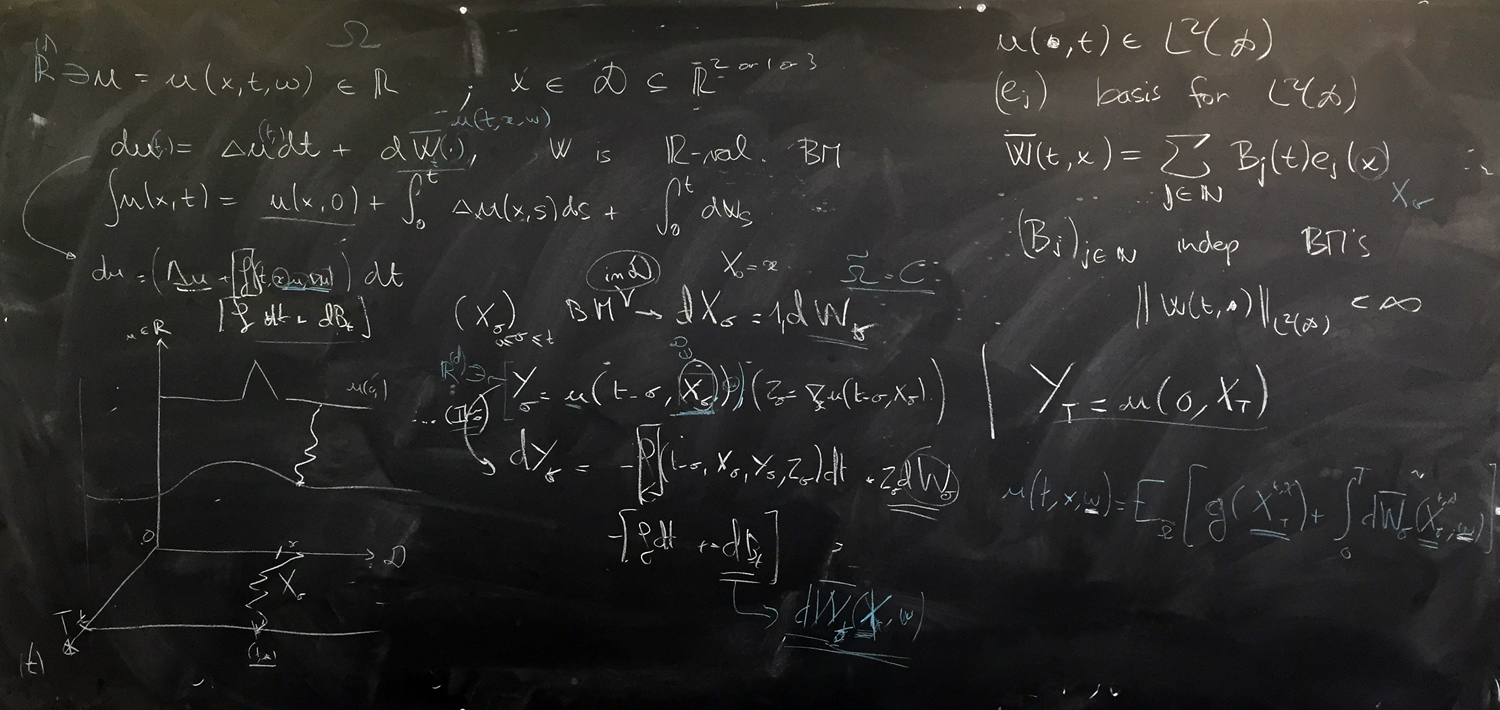 Ω
ℝ^(d) ∋ u = u(x,t,ω) ∈ ℝ ; x ∈ D ⊆ ℝ^2 or 1 or 3
u(t,x,ω)
du(t) = Δu(t)dt + dW̅(·), W is ℝ-val. BM
∫u(x,t) = u(x,0) + ∫_0^t Δu(x,s)ds + ∫_0^t dW_s
du = (Δu + f(t,x,u,∇u)) dt
[f dt + dB_t]
(X_σ)_{0≤σ≤t} BM in D → dX_σ = 1,dW_σ
X_0 = x
Ω̃ = C
ℝ^(d) ∋ Y_σ = u(t-σ, X_σ(ω)) (Z_σ = ∇_x u(t-σ, X_σ))
dY_σ = -f(t-σ, X_σ, Y_σ, Z_σ)dt + Z_σ dW_σ
-[f dt + dB_t]
→ dW̅_σ(X, ω)
u ∈ ℝ
u(0,·)
0
x
D
X_σ
T
(t)
(t,x)
u(·,t) ∈ L²(D)
(e_j) basis for L²(D)
W̅(t,x) = Σ_{j∈ℕ} B_j(t)e_j(x)
X_σ
(B_j)_{j∈ℕ} indep BM's
‖W(t,·)‖_{L²(D)} < ∞
Y_T = u(0, X_T)
u(t,x,ω) = E_Ω̃ [g(X_T^{t,x}) + ∫_0^T dW̅_σ(X_σ^{t,x}, ω)]